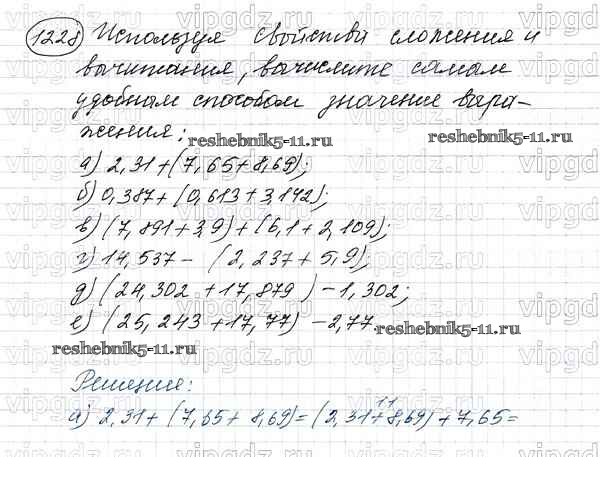 1228 Используя свойства сложения и
вычитания, вычислите самым
удобным способом значение выра-
жения:
reshebnik5-11.ru
reshebnik5-11.ru
а) 2,31+(7,65+8,69);
б) 0,387+(0,613+3,142);
в) (7,891+3,9)+(6,1+2,109);
г) 14,537-(2,237+5,9);
д) (24,302+17,879)-1,302;
е) (25,243+17,77)-2,77.
reshebnik5-11.ru
reshebnik5-11.ru
Решение:
11
а) 2,31+(7,65+8,69)=(2,31+8,69)+7,65=
vipgdz.ru